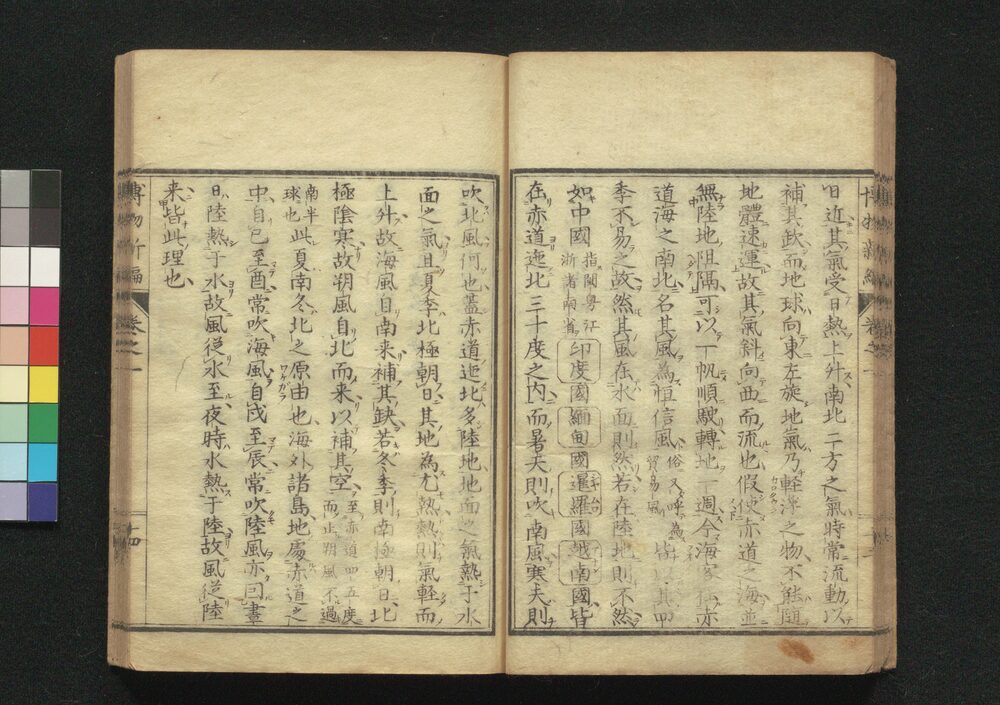 日近其氣受日熱上升南北二方之氣時常流動以
補其缺而地球向東左旋地氣乃輕浮之物不能隨
地體速運故其氣斜向西而流也假使赤道之海並
無陸地阻隔可以一帆順駛轉地一週今海客
道海之南北名其風為恒信風俗又呼為貿易風皆
季不易之故然其風在水面則然若在陸地則不然
如中國指閩粤江浙者兩省印度國緬甸國暹羅國越南國皆
在赤道迤北三十度之内而暑天則吹南風寒天則
吹北風何也蓋赤道迤北多陸地地面之氣熱于水
面之氣且夏季北極朝日其地為尤熱熱則氣輕而
上升故海風自南来補其缺若冬季則南極朝日北
極陰寒故朔風自北而来以補其空至赤道四五度而止朔風不過
南半球也此夏南冬北之原由也海外諸島地處赤道之
中自巳至酉常吹海風自戌至辰常吹陸風亦曰晝
日陸熱于水故風從水至夜時水熱于陸故風從陸
来皆此理也
博物新編
卷之一
十四